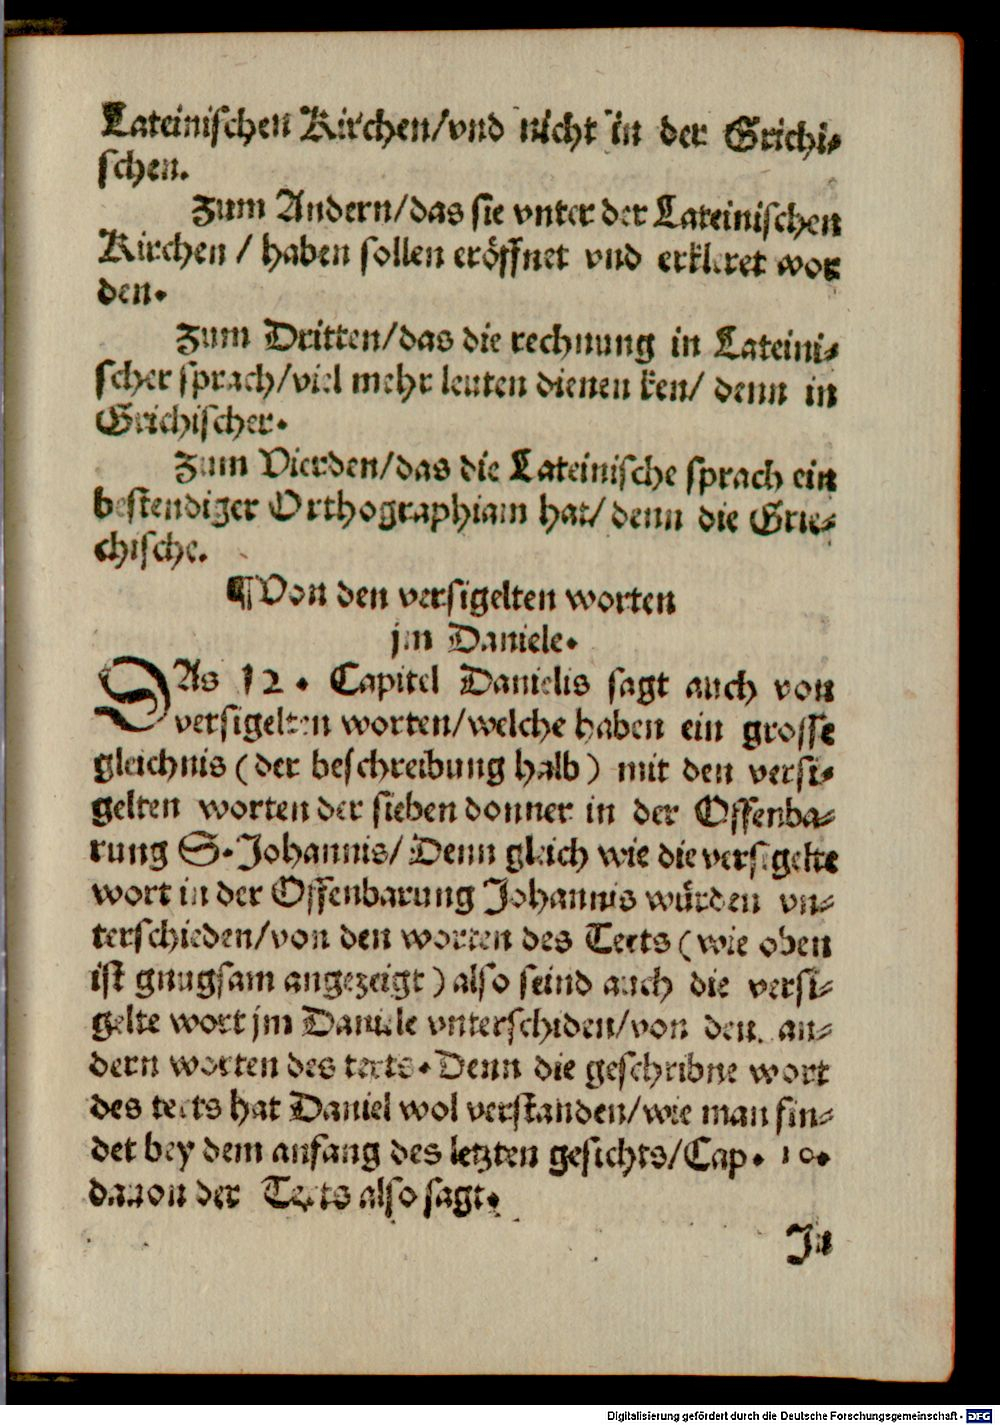 Lateinischen Kirchen/vnd nicht in der Grichi-
schen.
Zum Andern/das sie vnter der Lateinischen
Kirchen / haben sollen eröffnet vnd erkleret wor
den.
Zum Dritten/das die rechnung in Lateini-
scher sprach/viel mehr leuten dienen ken/ denn in
Grichischer.
Zum Vierden/das die Lateinische sprach ein
bestendiger Orthographiam hat/ denn die Grie-
chische.
¶Von den versigelten worten
jm Daniele.
DAs 12. Capitel Danielis sagt auch von
versigelten worten/welche haben ein grosse
gleichnis (der beschreibung halb) mit den versi-
gelten worten der sieben donner in der Offenba-
rung S. Johannis/ Denn gleich wie die versigelte
wort in der Offenbarung Johannis würden vn-
terschieden/von den worten des Texts (wie oben
ist gnugsam angezeigt) also seind auch die versi-
gelte wort jm Daniele vnterschiden/von den an-
dern worten des texts. Denn die geschribne wort
des texts hat Daniel wol verstanden/wie man fin-
det bey dem anfang des letzten gesichts/Cap. 10.
dauon der Texts also sagt.
In
Digitalisierung gefördert durch die Deutsche Forschungsgemeinschaft - DFG